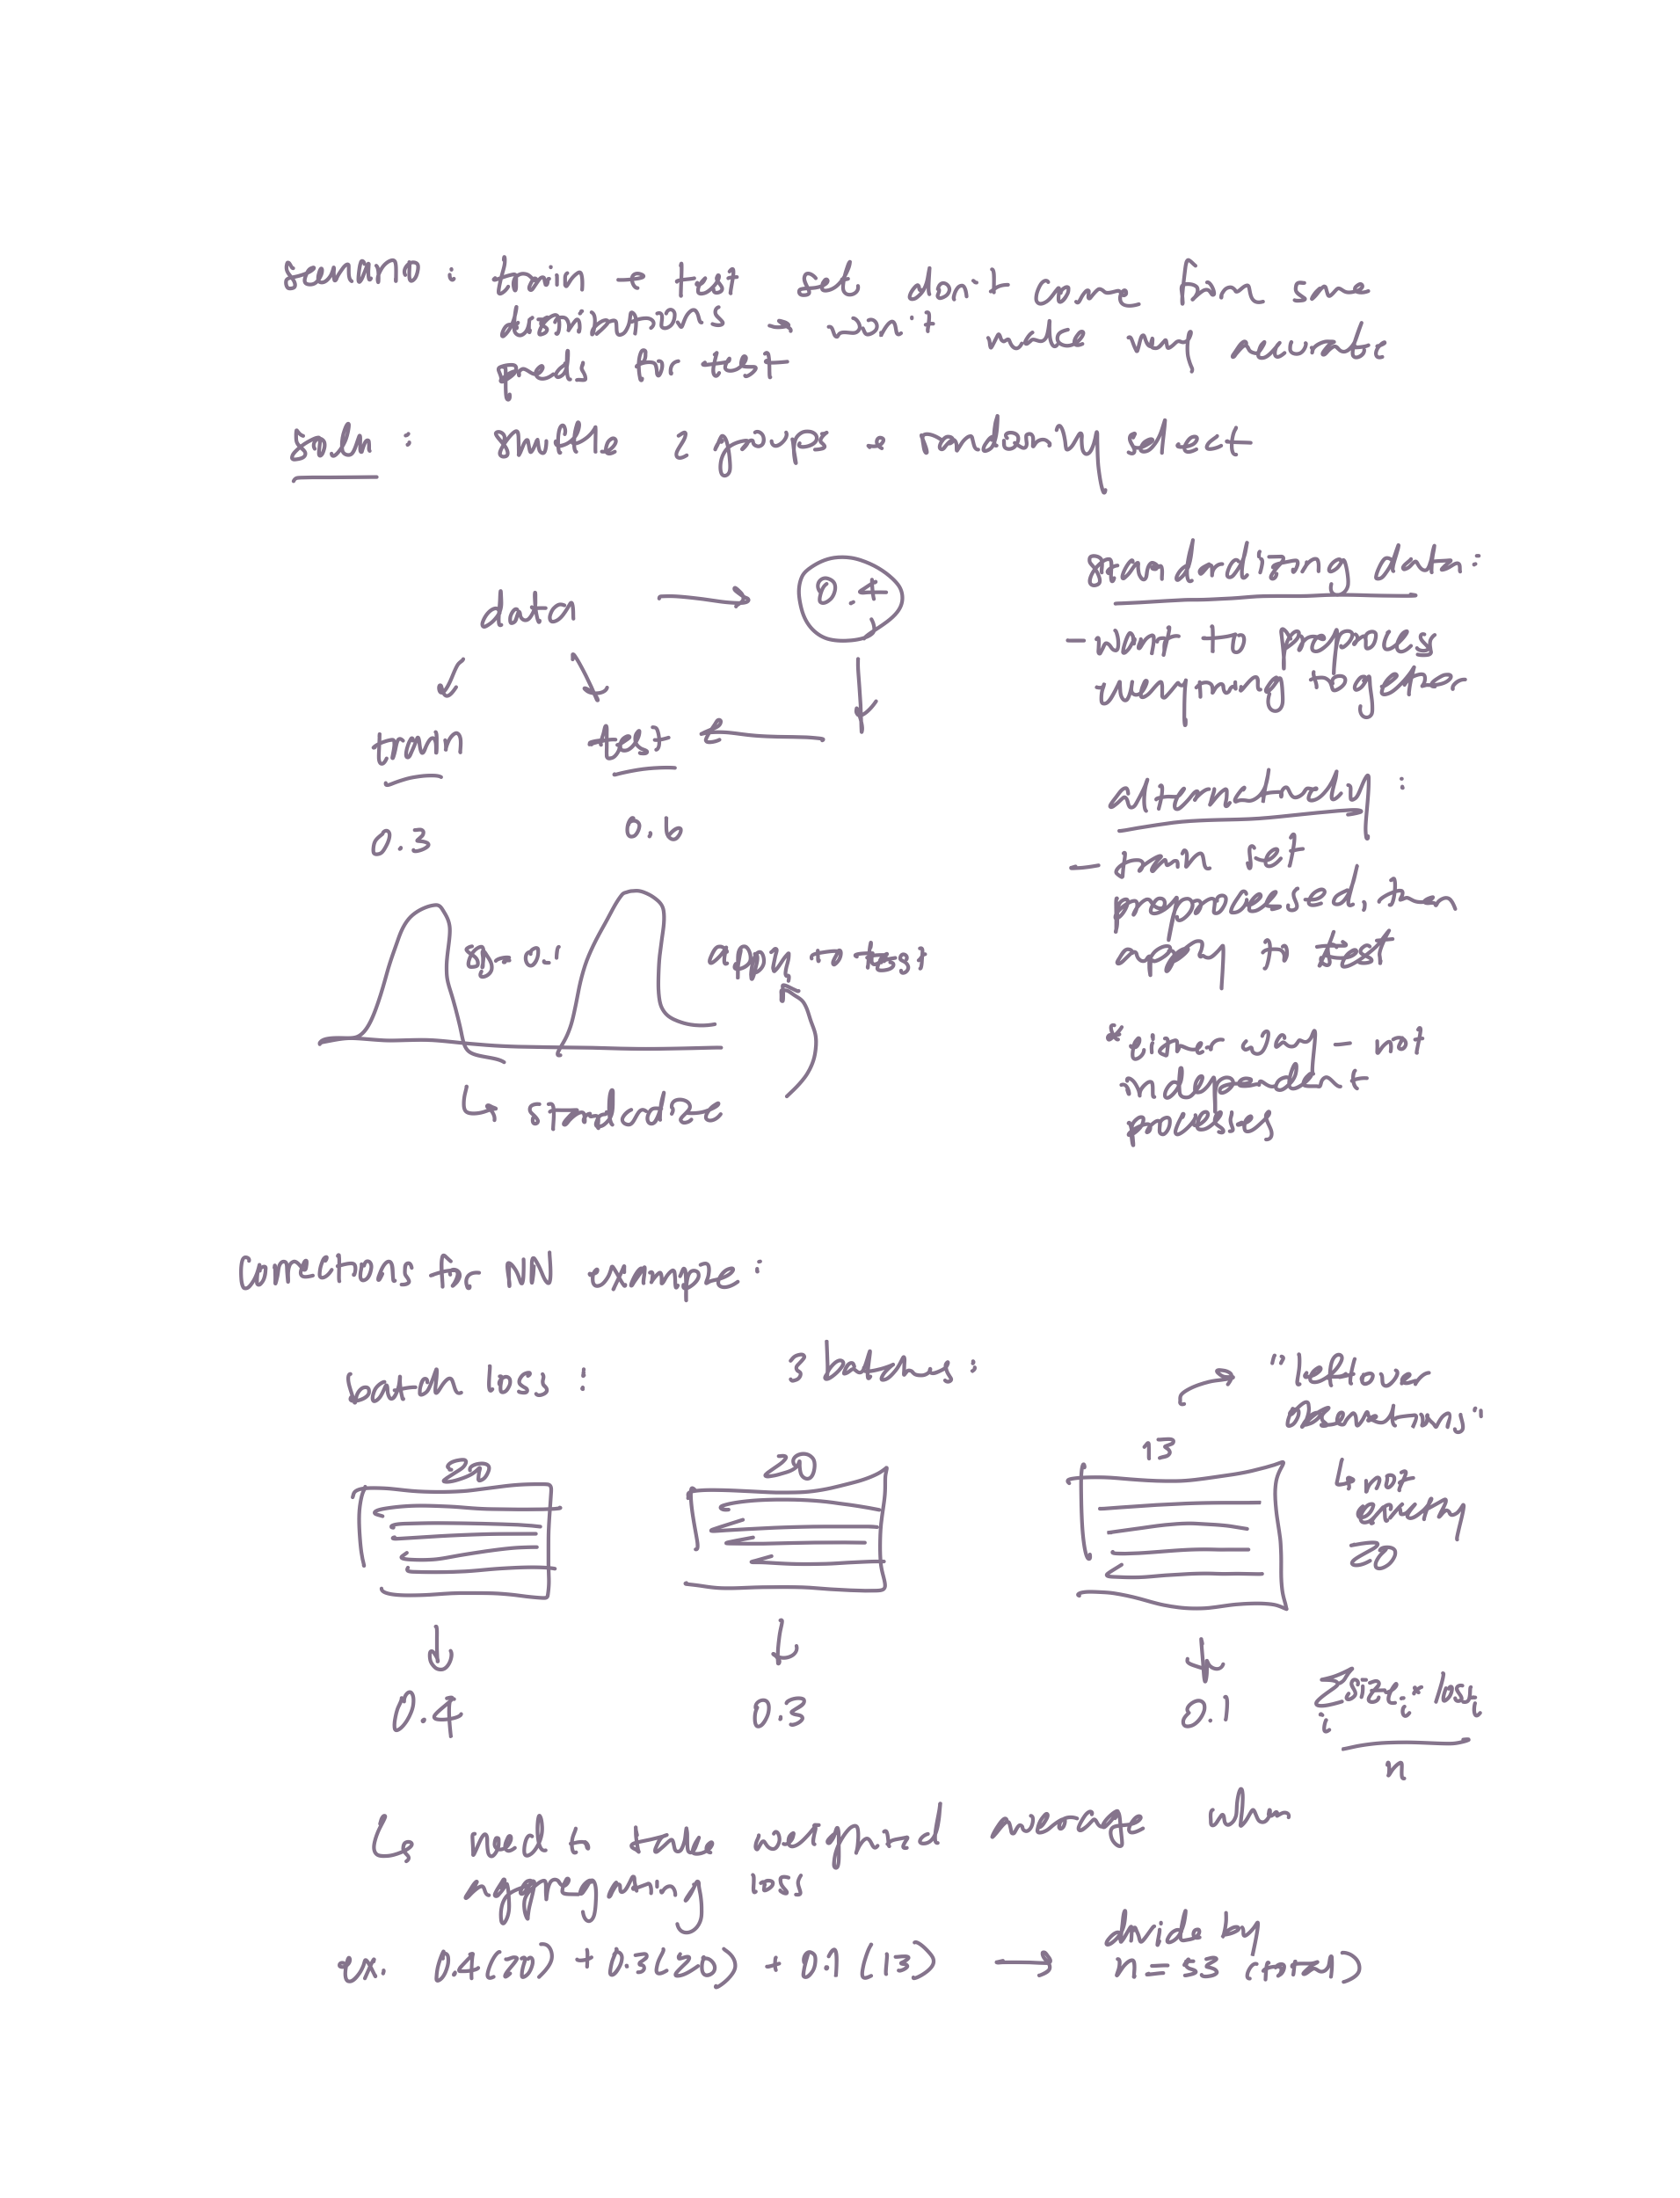 scenario : train + test set don't come from same
distributions → won't make very accurate
preds for test
soln : shuffle 2 groups + randomly select
data → 0.4
train test
0.3 0.6
SD = 0.1
apply to test
↳ standardize
standardizing data :
- want to preprocess
everything together
alternatively :
- train set
preprocessed, then
apply to test
* either way - not
independent
processes
corrections for NN example :
batch loss : 3 batches :
"leftover
observations"
↳ not
exactly
20
20 20 13
0.4 0.3 0.1
∑ size_i * loss_i
i
n
↳ need to take weighted average when
aggregating loss
ex. 0.4(20) + 0.3(20) + 0.1(13) → divide by
n = 53 (total)